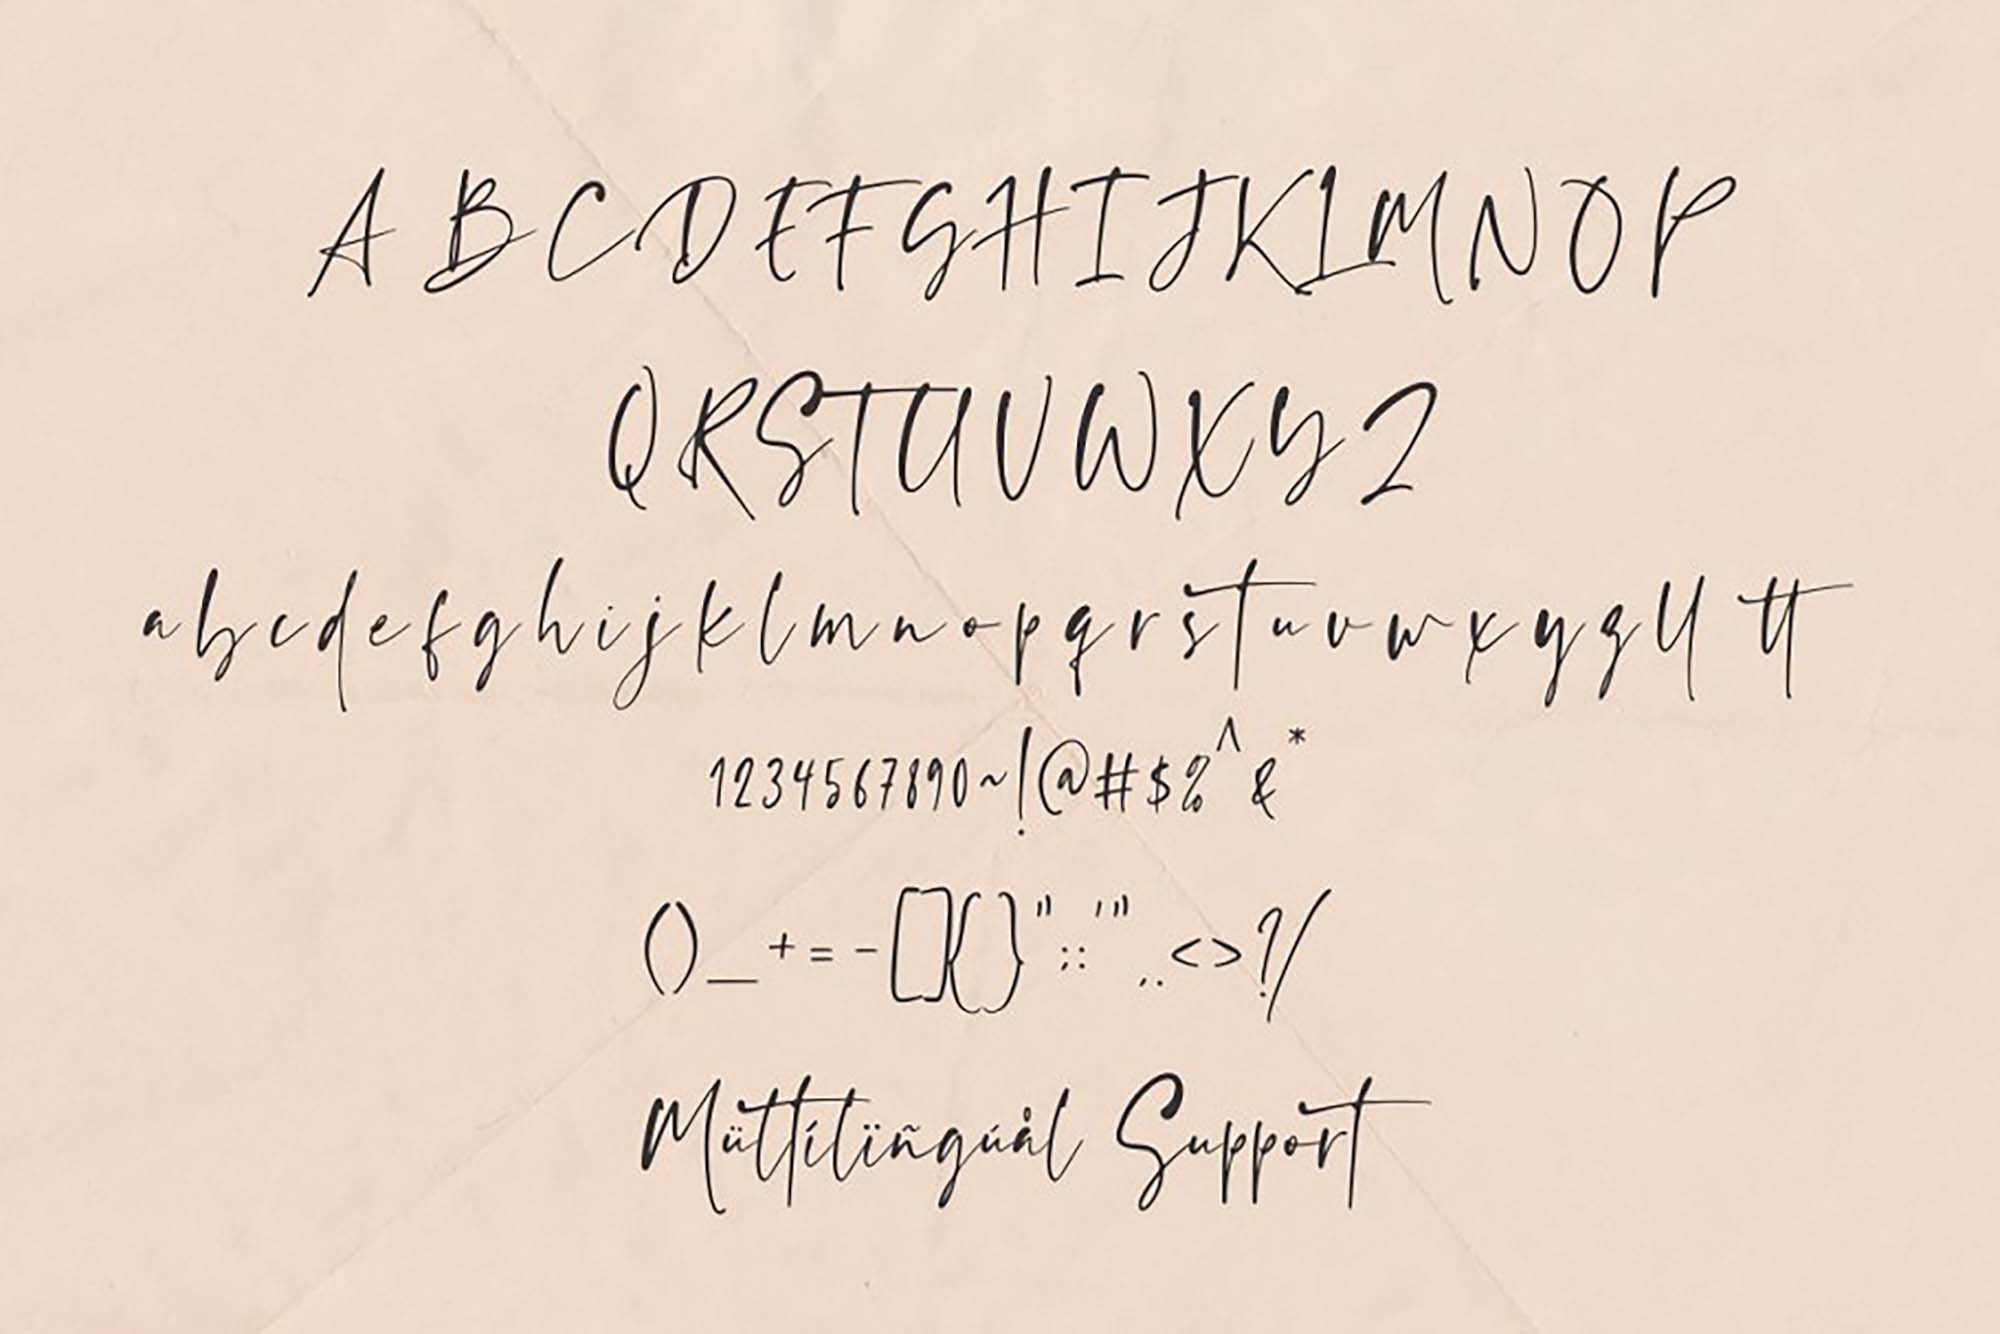 A B C D E F G H I J K L M N O P
Q R S T U V W X Y Z
a b c d e f g h i j k l m n o p q r s t u v w x y z ll tt
1234567890~!@#$%^&*
()_+=-[]{}";:'",.<>?/
Müttílïñgúål Support